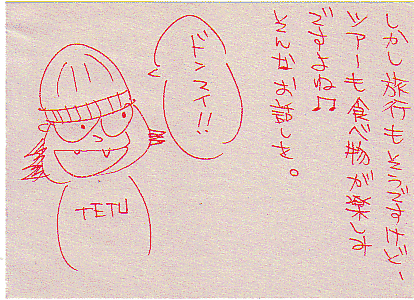 しかし旅行もそうですけど、
ツアーも食べ物が楽しす
ですよね♫
そんなお話しを。
ドンマイ!!
TETU